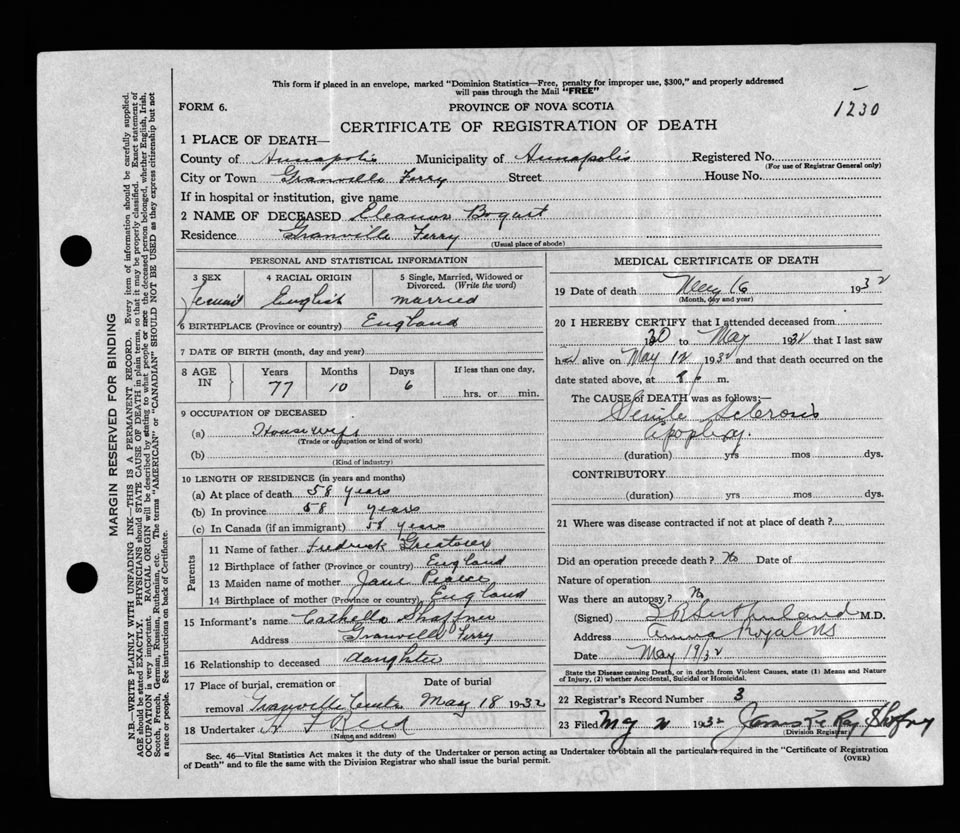 This form if placed in an envelope, marked "Dominion Statistics—Free, penalty for improper use, $300," and properly addressed
will pass through the Mail "FREE"
FORM 6.
PROVINCE OF NOVA SCOTIA
1230
CERTIFICATE OF REGISTRATION OF DEATH
1 PLACE OF DEATH—
County of Annapolis Municipality of Annapolis Registered No.
(For use of Registrar General only)
City or Town Granville Ferry Street House No.
If in hospital or institution, give name
2 NAME OF DECEASED Eleanor Bogart
Residence Granville Ferry
(Usual place of abode)
PERSONAL AND STATISTICAL INFORMATION
3 SEX 4 RACIAL ORIGIN 5 Single, Married, Widowed or Divorced. (Write the word)
English married
6 BIRTHPLACE (Province or country) England
7 DATE OF BIRTH (month, day and year)
8 AGE IN Years Months Days If less than one day,
77 10 6 hrs. or min.
9 OCCUPATION OF DECEASED
(a) Housewife
(Trade or occupation or kind of work)
(b)
(Kind of industry)
10 LENGTH OF RESIDENCE (in years and months)
(a) At place of death 58 years
(b) In province 58 years
(c) In Canada (if an immigrant) 58 years
Parents
11 Name of father Fedrick
12 Birthplace of father (Province or country) England
13 Maiden name of mother Jane Pearce
14 Birthplace of mother (Province or country) England
15 Informant's name Shaffner
Address Granville Ferry
16 Relationship to deceased daughter
17 Place of burial, cremation or removal Date of burial
Granville Centre May 18 1932
18 Undertaker Reed
(Name and address)
MEDICAL CERTIFICATE OF DEATH
19 Date of death May 16 1932
(Month, day and year)
20 I HEREBY CERTIFY that I attended deceased from
30 to May 1932 that I last saw
her alive on May 12 1932 and that death occurred on the
date stated above, at m.
The CAUSE of DEATH was as follows;—
Senile Sclerosis
Apoplexy.
(duration) yrs mos dys.
CONTRIBUTORY
(duration) yrs. mos. dys.
21 Where was disease contracted if not at place of death?
Did an operation precede death? No Date of
Nature of operation
Was there an autopsy? No
(Signed) Sutherland M.D.
Address Anna Royal NS
Date May 19/32
State the Disease causing Death, or in death from Violent Causes, state (1) Means and Nature
of Injury, (2) whether Accidental, Suicidal or Homicidal.
22 Registrar's Record Number 3
23 Filed 1932
(Division Registrar)
Sec. 46—Vital Statistics Act makes it the duty of the Undertaker or person acting as Undertaker to obtain all the particulars required in the "Certificate of Registration
of Death" and to file the same with the Division Registrar who shall issue the burial permit.
(OVER)
MARGIN RESERVED FOR BINDING
N.B.—WRITE PLAINLY WITH UNFADING INK—THIS IS A PERMANENT RECORD. Every item of information should be carefully supplied.
AGE should be stated EXACTLY. PHYSICIANS should STATE CAUSE OF DEATH in plain terms, so that it may be properly classified. Exact statement of
OCCUPATION is very important. RACIAL ORIGIN will be described by stating to what people or race the deceased person belonged, whether English, Irish,
Scotch, French, German, Russian, Ruthenian, etc. The terms "AMERICAN" or "CANADIAN" SHOULD NOT BE USED as they express citizenship but not
a race or people. See instructions on back of Certificate.